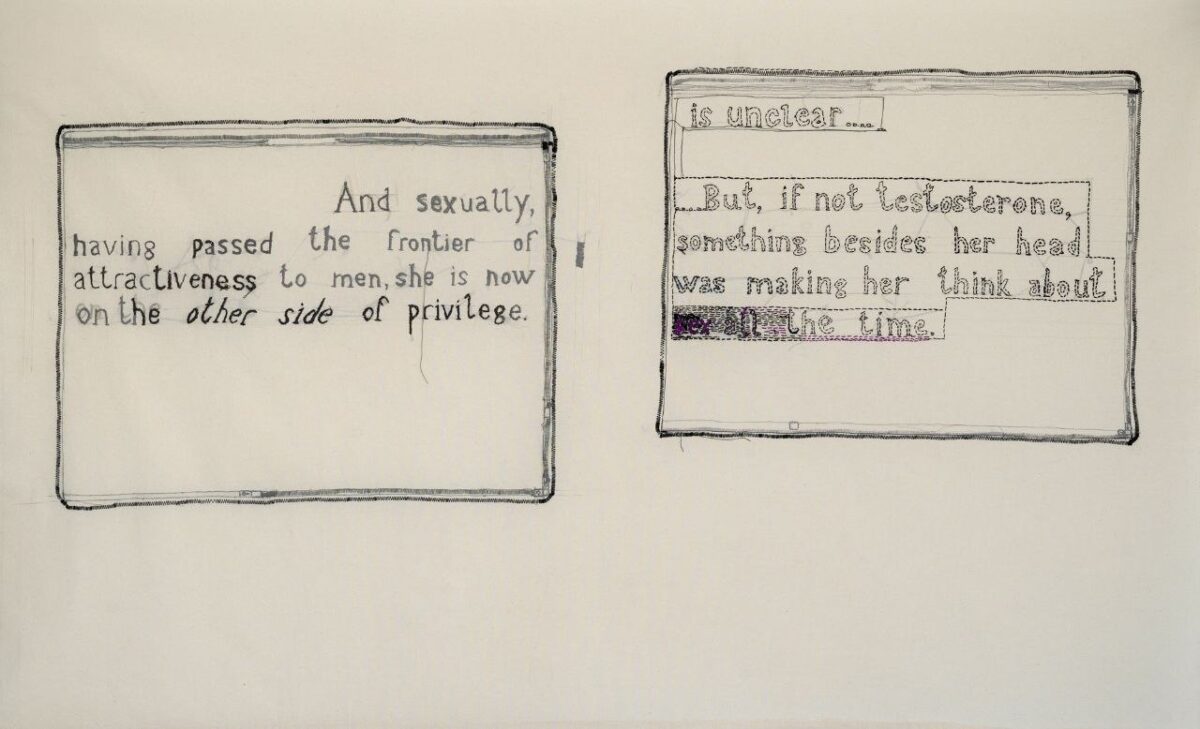 And sexually,
having passed the frontier of
attractiveness to men, she is now
on the other side of privilege.
is unclear....
....But, if not testosterone,
something besides her head
was making her think about
sex all the time.